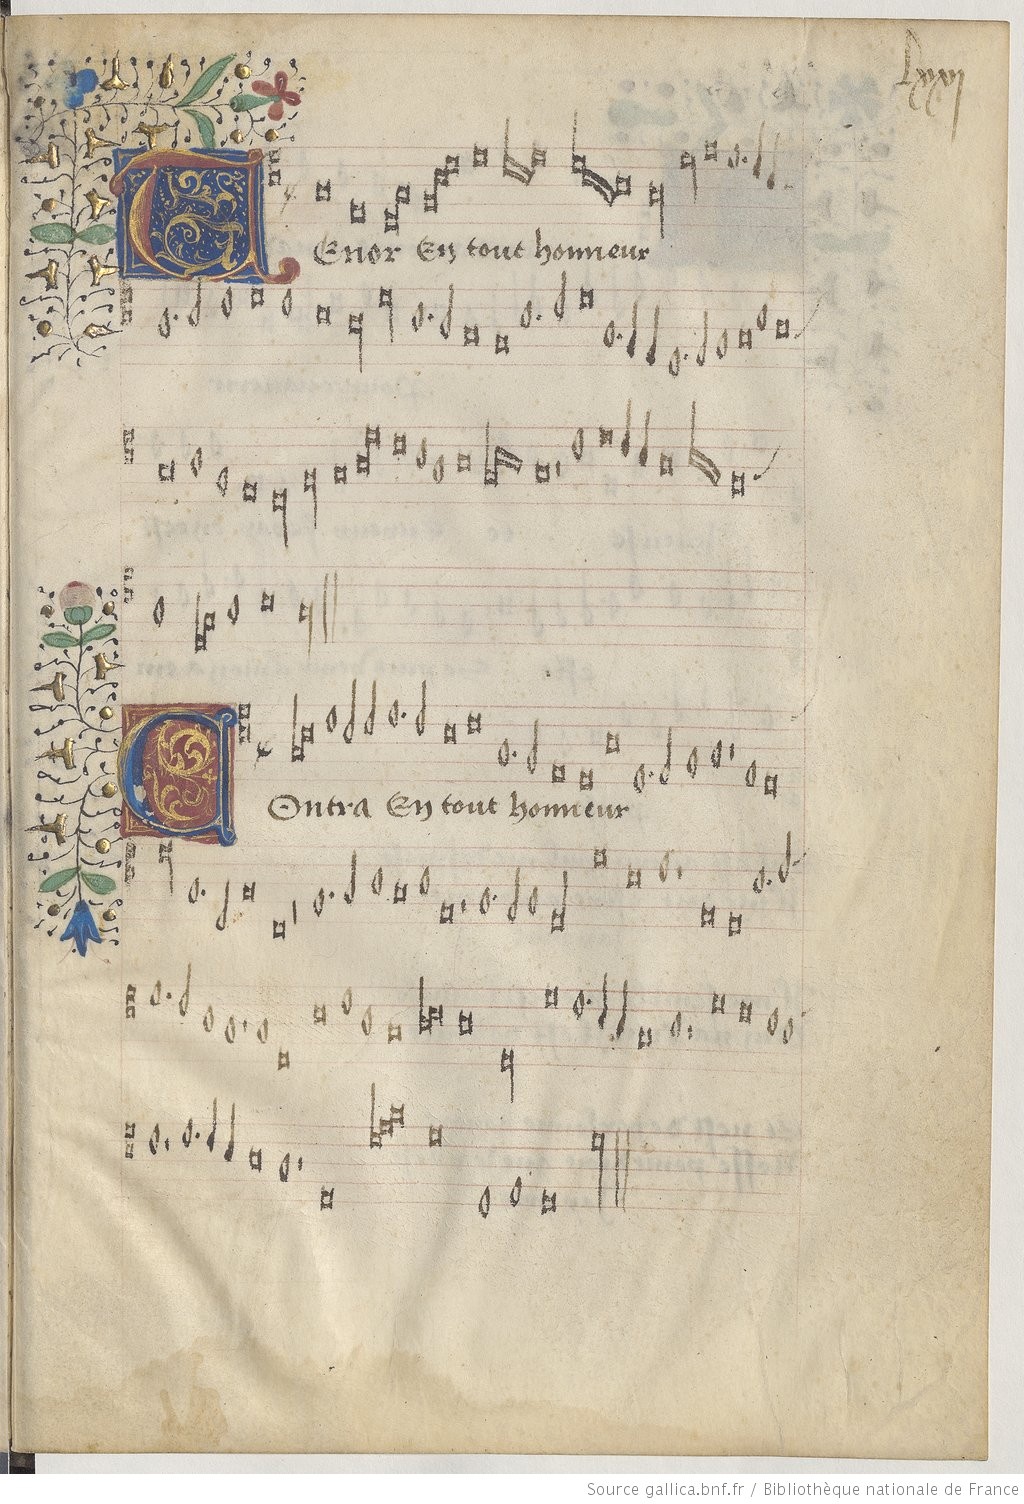 lxxxj
Tenor En tout honneur
Contra En tout honneur
Source gallica.bnf.fr / Bibliothèque nationale de France